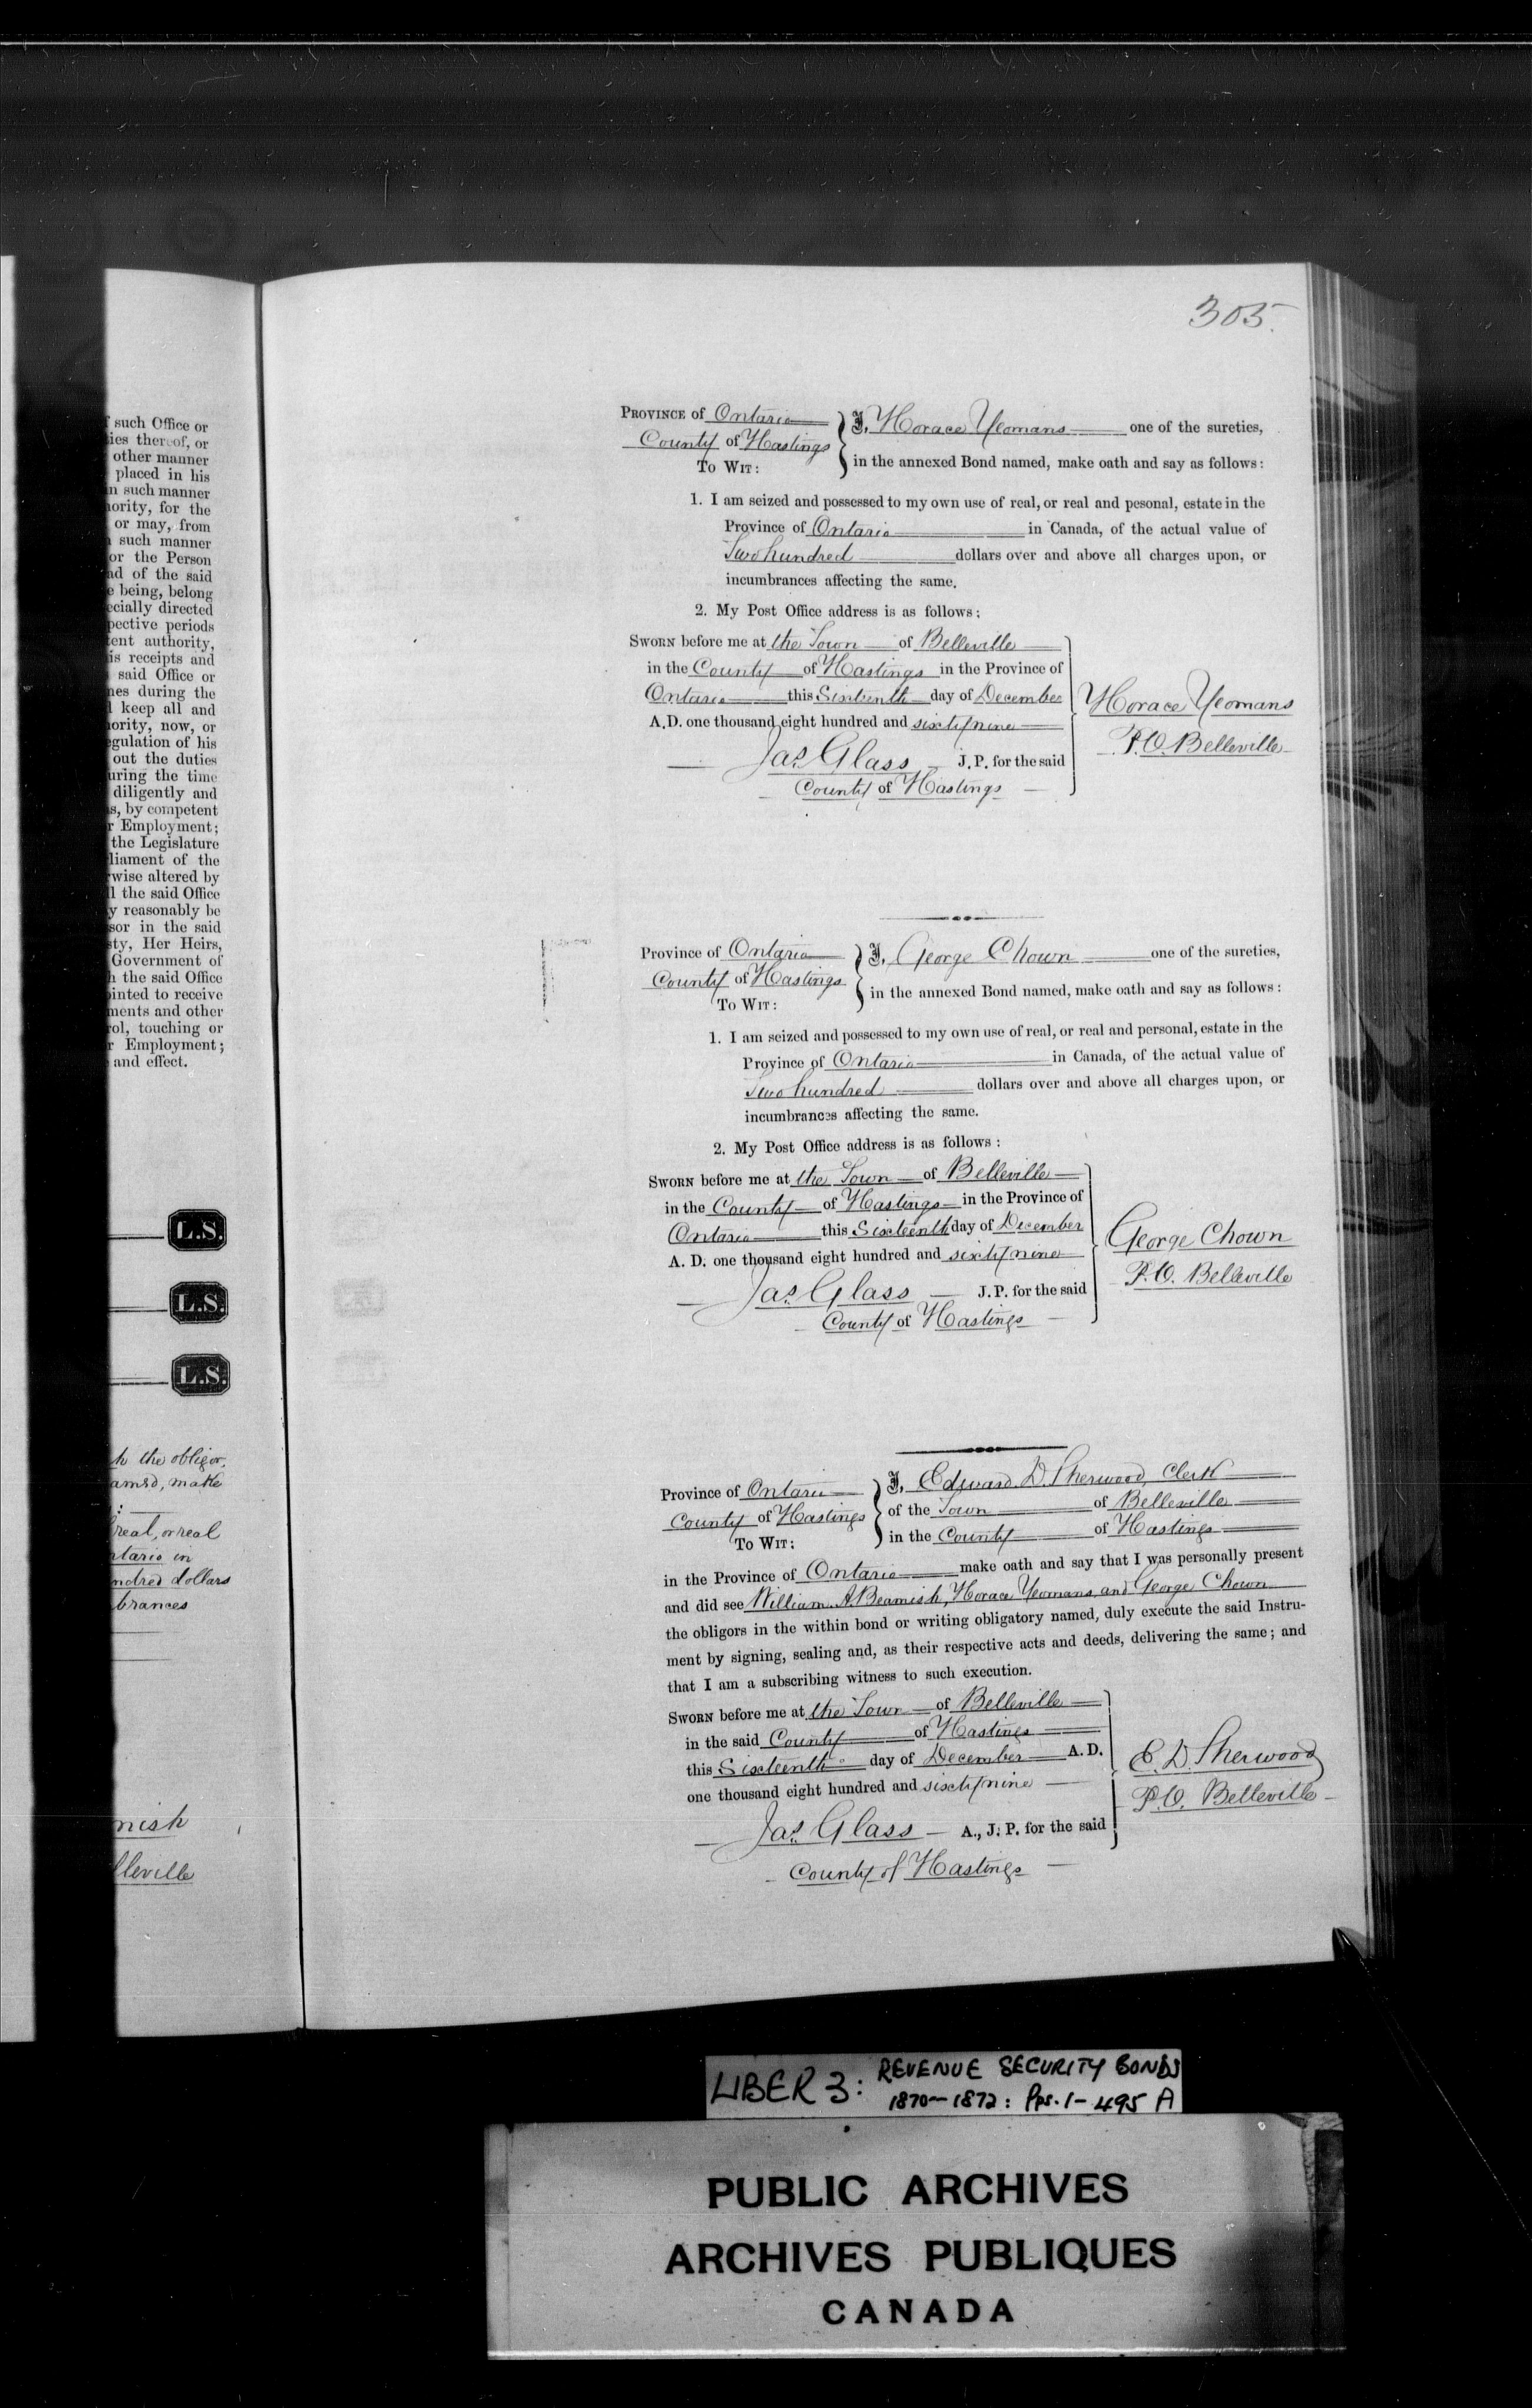 such Office or
ies thereof, or
other manner
placed in his
n such manner
ority, for the
or may, from
such manner
or the Person
ad of the said
e being, belong
ecially directed
pective periods
tent authority,
is receipts and
said Office or
nes during the
keep all and
ority, now, or
egulation of his
out the duties
uring the time
diligently and
s, by competent
r Employment;
the Legislature
liament of the
wise altered by
l the said Office
y reasonably be
sor in the said
sty, Her Heirs,
Government of
h the said Office
inted to receive
ments and other
rol, touching or
r Employment;
and effect.
L.S.
L.S.
L.S.
h the obligor,
amed, make
:
real, or real
ntario in
ndred dollars
brances
mish
lleville
305.
PROVINCE of Ontario
County of Hastings
TO WIT:
I, Horace Yeomans one of the sureties,
in the annexed Bond named, make oath and say as follows:
1. I am seized and possessed to my own use of real, or real and pesonal, estate in the
Province of Ontario in Canada, of the actual value of
Two hundred dollars over and above all charges upon, or
incumbrances affecting the same.
2. My Post Office address is as follows:
SWORN before me at the Town of Belleville
in the County of Hastings in the Province of
Ontario this Sixteenth day of December
A.D. one thousand eight hundred and sixty nine
Jas. Glass J. P. for the said
County of Hastings
Horace Yeomans
P.O. Belleville
Province of Ontario
County of Hastings
TO WIT:
I, George Chown one of the sureties,
in the annexed Bond named, make oath and say as follows:
1. I am seized and possessed to my own use of real, or real and personal, estate in the
Province of Ontario in Canada, of the actual value of
Two hundred dollars over and above all charges upon, or
incumbrances affecting the same.
2. My Post Office address is as follows:
SWORN before me at the Town of Belleville
in the County of Hastings in the Province of
Ontario this Sixteenth day of December
A. D. one thousand eight hundred and sixty nine
Jas. Glass J. P. for the said
County of Hastings
George Chown
P.O. Belleville
Province of Ontario
County of Hastings
TO WIT:
I, Edward D. Sherwood, Clerk
of the Town of Belleville
in the County of Hastings
in the Province of Ontario make oath and say that I was personally present
and did see William A Beamish, Horace Yeomans, and George Chown
the obligors in the within bond or writing obligatory named, duly execute the said Instru-
ment by signing, sealing and, as their respective acts and deeds, delivering the same; and
that I am a subscribing witness to such execution.
SWORN before me at the Town of Belleville
in the said County of Hastings
this Sixteenth day of December A. D.
one thousand eight hundred and sixty nine
Jas. Glass A., J. P. for the said
County of Hastings
E. D. Sherwood
P.O. Belleville
LIBER 3: REVENUE SECURITY BONDS
1870-1872: Pps. 1-495 A
PUBLIC ARCHIVES
ARCHIVES PUBLIQUES
CANADA